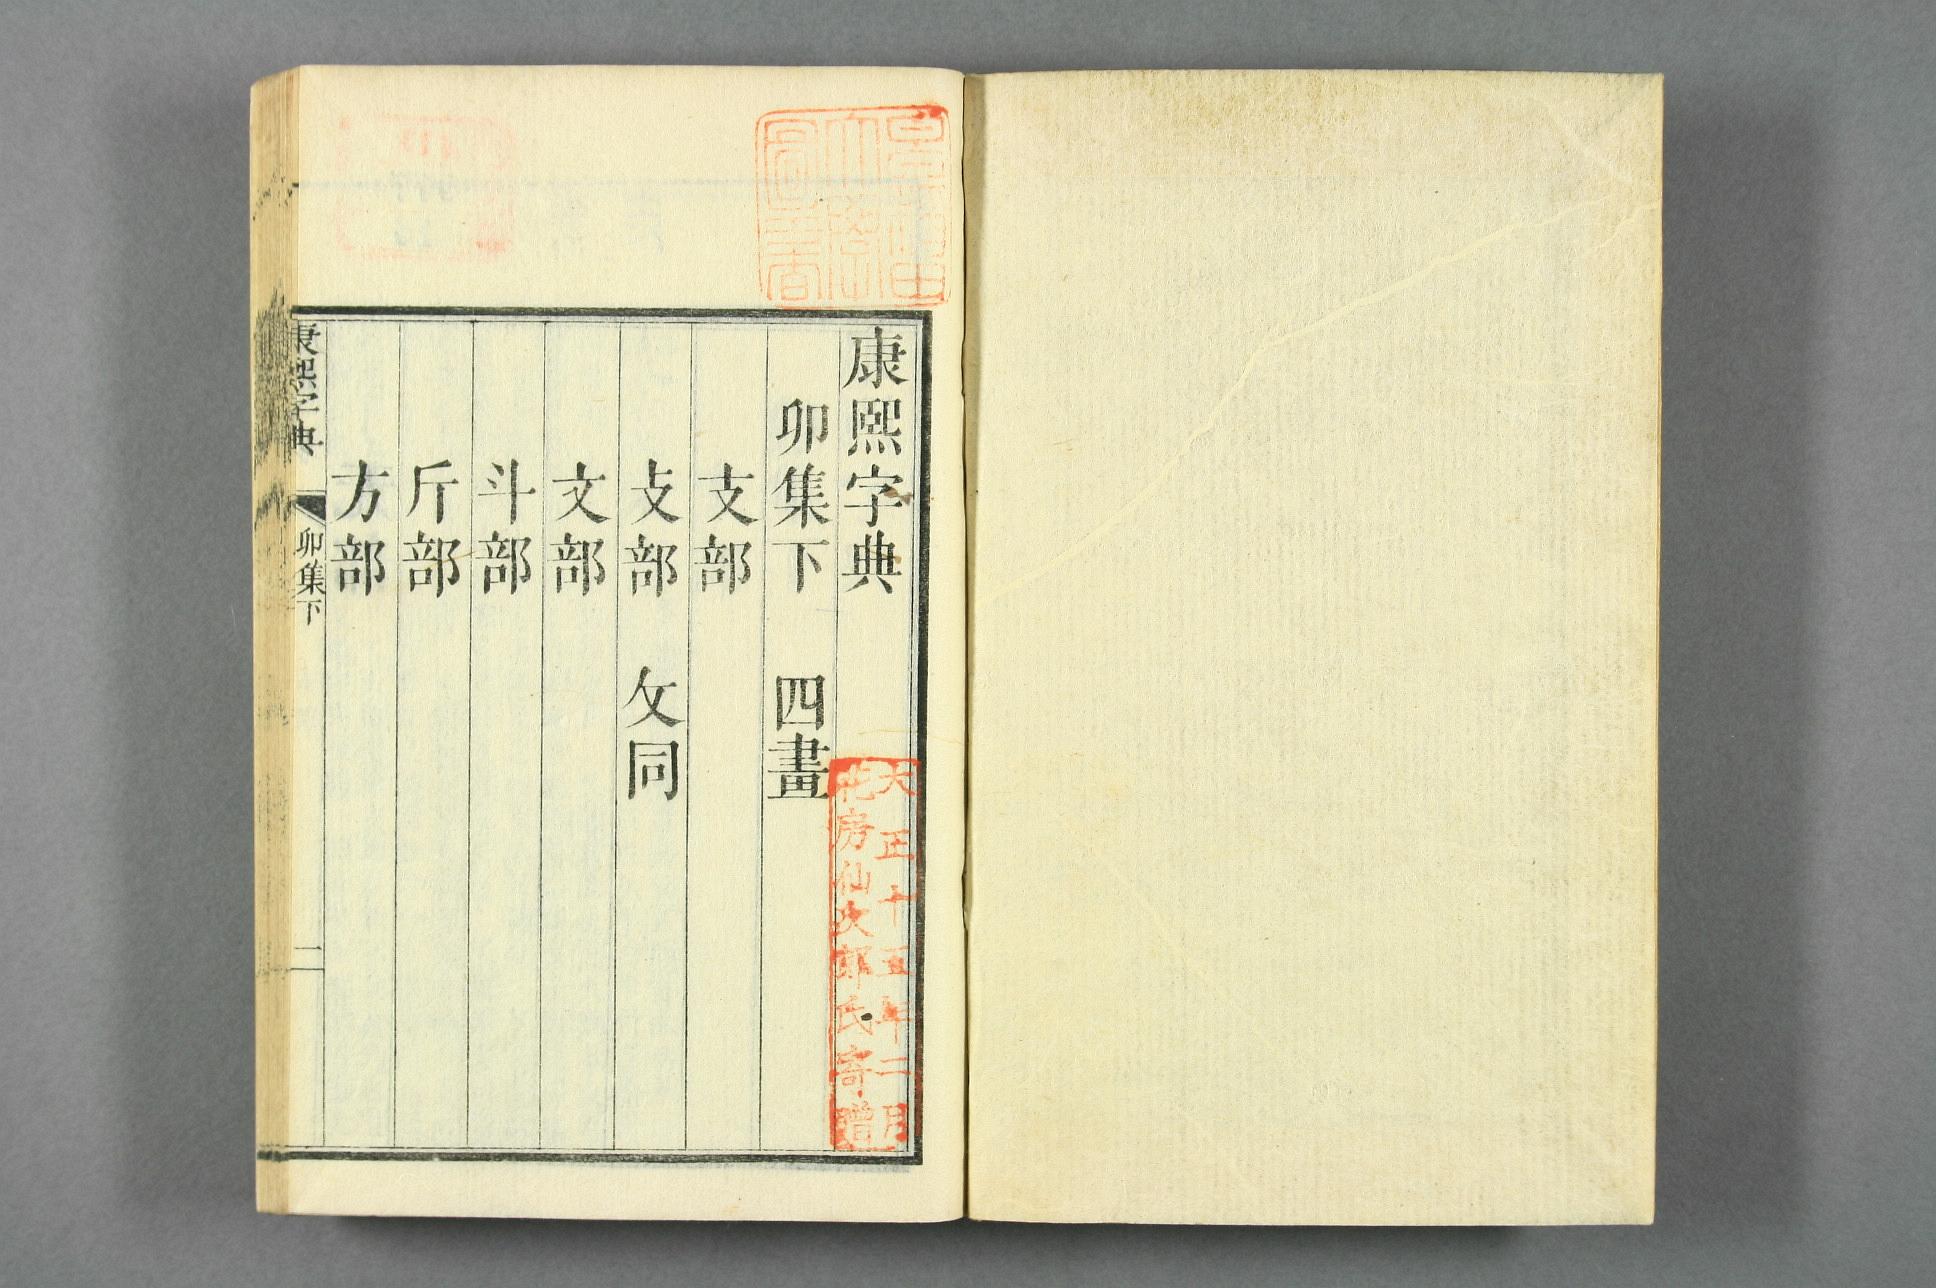 康熙字典
卯集下 四畫
支部
攴部 攵同
文部
斗部
斤部
方部
康熙字典 卯集下 一
大正十五年二月
花房仙次郎氏寄贈